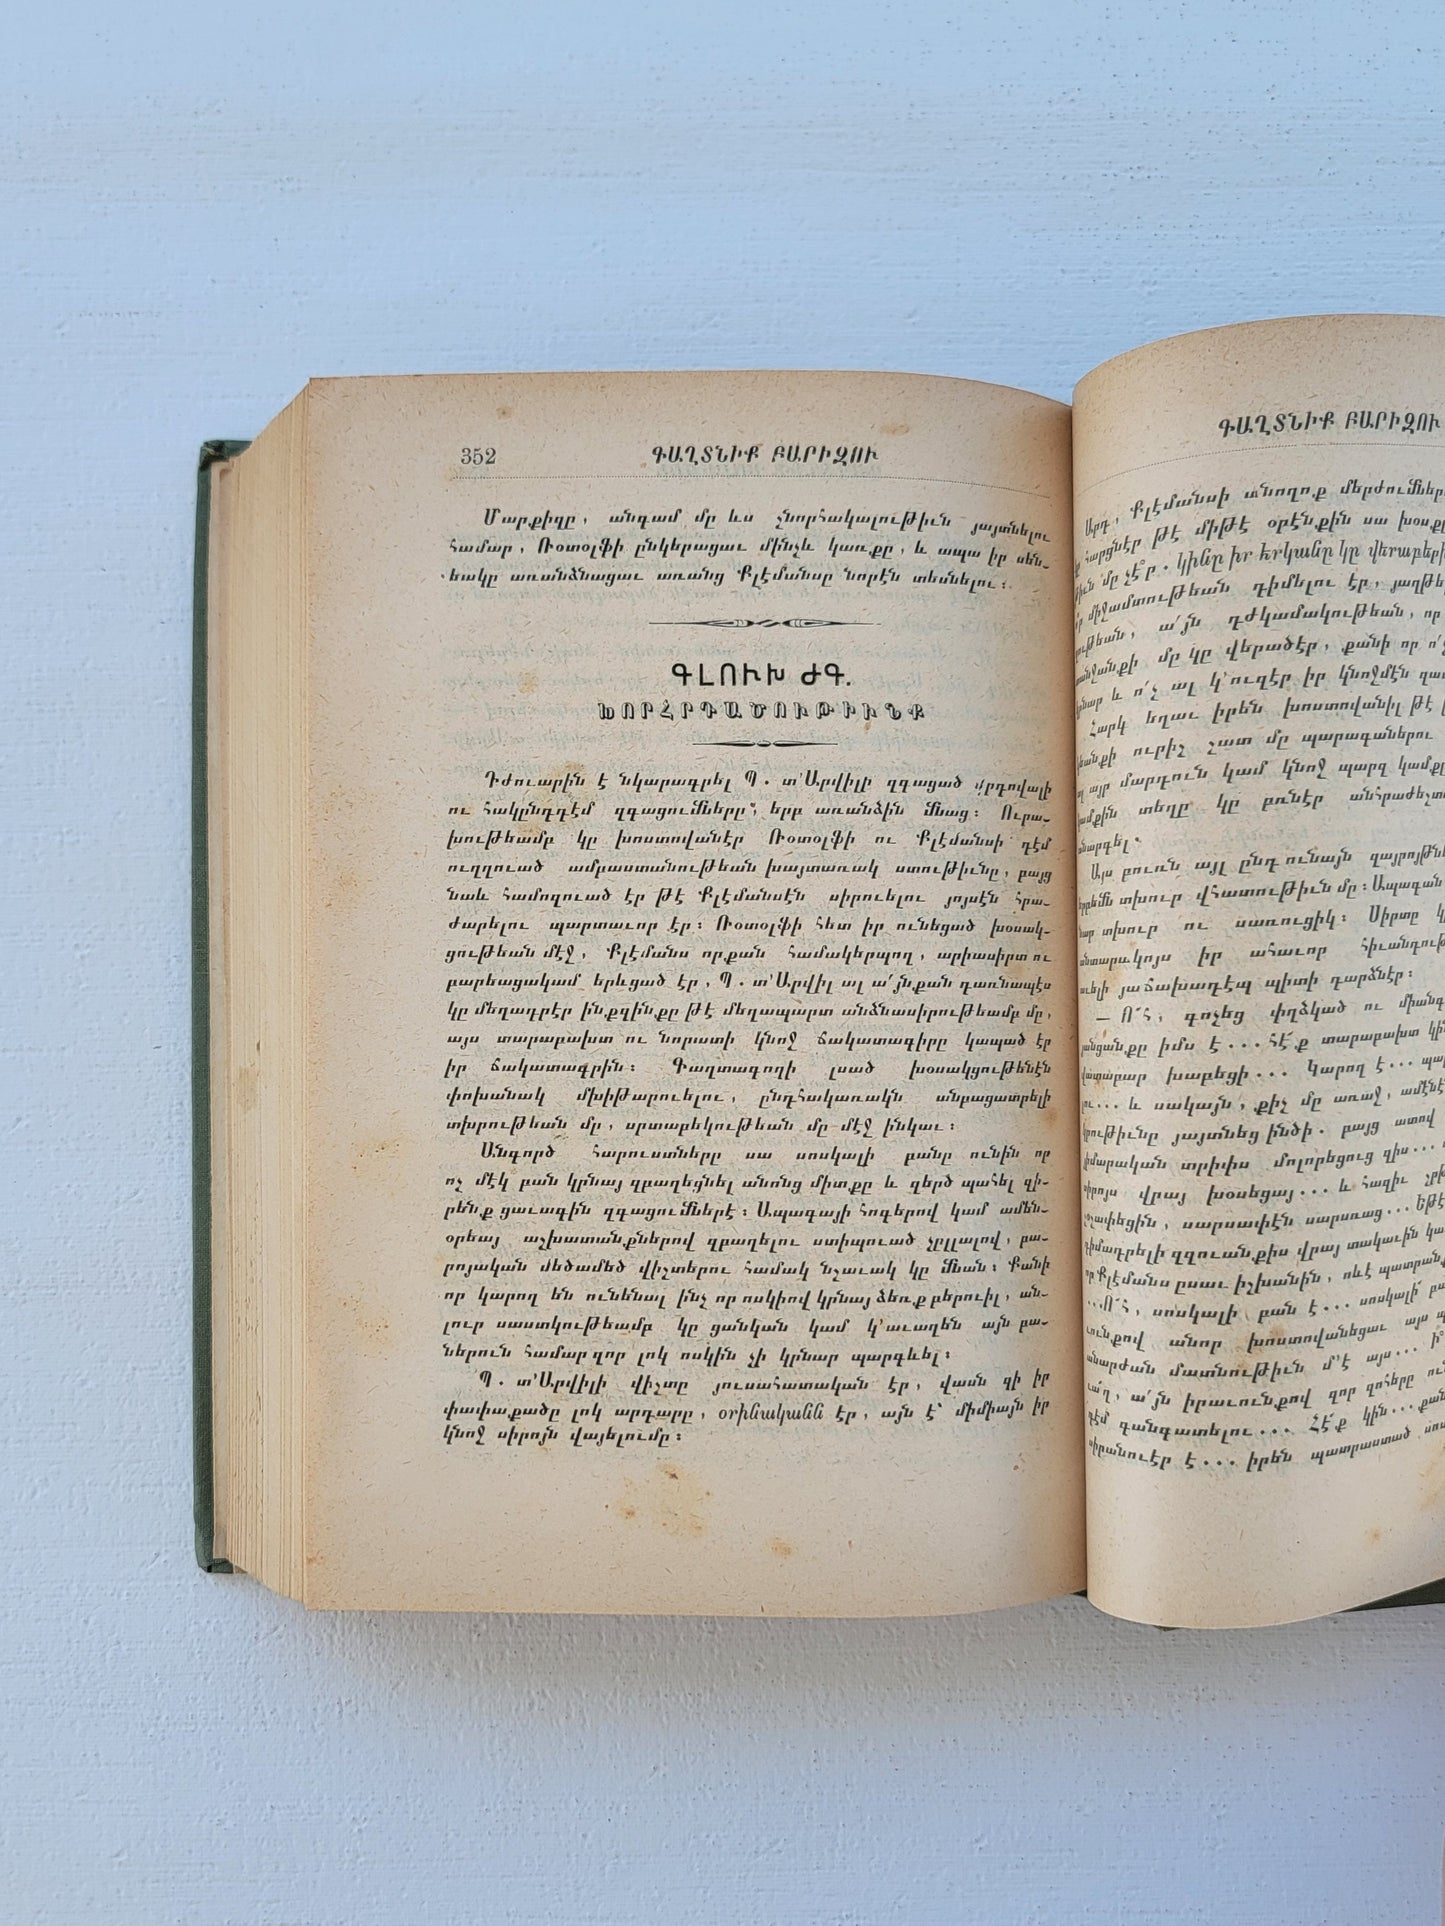 352 ԳԱՂՏՆԻՔ ԲԱՐԻԶՈՒ
Մարքիզը, անգամ մը ևս շնորհակալութիւն յայտնելու
համար, Ռօտօլֆի ընկերացաւ մինչև կառքը, և ապա իր սեն-
եակը առանձնացաւ առանց Քլէմանսը նորէն տեսնելու։
ԳԼՈՒԽ ԺԳ.
ԽՈՐՀՐԴԱԾՈՒԹԻՒՆՔ
Դժուարին է նկարագրել Պ. տ՚Արվիլի զգացած վրդովալի
ու հակընդդէմ զգացումները, երբ առանձին մնաց։ Ուրա-
խութեամբ կը խոստովանէր Ռօտօլֆի ու Քլէմանսի դէմ
ուղղուած ամբաստանութեան խայտառակ ստութիւնը, բայց
նաև համոզուած էր թէ Քլէմանսէն սիրուելու յոյսէն հրա-
ժարելու պարտաւոր էր։ Ռօտօլֆի հետ իր ունեցած խօսակ-
ցութեան մէջ, Քլէմանս որքան համակերպող, արիասիրտ ու
բարեացակամ երևցած էր, Պ. տ՚Արվիլ ալ ա՛յնքան դառնապէս
կը մեղադրէր ինքզինքը թէ մեղապարտ անձնասիրութեամբ մը,
այս տարաբախտ ու նորատի կնոջ ճակատագիրը կապած էր
իր ճակատագրին։ Գաղտագողի լսած խօսակցութենէն
փոխանակ մխիթարուելու, ընդհակառակն անբացատրելի
տխրութեան մը, սրտաբեկութեան մը մէջ ինկաւ։
Անգործ հարուստները սա սոսկալի բանը ունին որ
ոչ մէկ բան կրնայ զբաղեցնել անոնց միտքը և զերծ պահել զի-
րենք ցաւագին զգացումներէ։ Ապագայի հոգերով կամ ամեն-
օրեայ աշխատանքներով զբաղելու ստիպուած չըլլալով, բա-
րոյական մեծամեծ վիշտերու համակ նշաւակ կը մնան։ Քանի
որ կարող են ունենալ ինչ որ ոսկիով կրնայ ձեռք բերուիլ, ան-
լուր սաստկութեամբ կը ցանկան կամ կ՚աւաղեն այն բա-
ներուն համար զոր լոկ ոսկին չի կրնար պարգևել։
Պ. տ՚Արվիլի վիշտը յուսահատական էր, վասն զի իր
փափաքածը լոկ արդարը, օրինականն էր, այն է՝ միմիայն իր
կնոջ սիրոյն վայելումը։
ԳԱՂՏՆԻՔ ԲԱՐԻԶՈՒ
Արդ, Քլէմանսի անողոք մերժումներ
հարցնէր թէ միթէ օրէնքին սա խօսքը
մը չէ՞ր. կինը իր երկանը կը վերաբերի
միջամտութեան դիմելու էր, յաղթե
ա՛յն դժկամակութեան, որ
մը կը վերածէր, քանի որ ո՛չ
և ո՛չ ալ կ՚ուզէր իր կնոջմէն
Հարկ եղաւ իրեն խոստովանիլ թէ
ուրիշ շատ մը պարագաներու
այր մարդուն կամ կնոջ պարզ
տեղը կը բռնէր անհրաժեշտ
Այս բուռն այլ ընդունայն զայրոյթնե
տխուր վհատութիւն մը։ Ապագան
տխուր ու սառուցիկ։ Սիրտը
իր ահաւոր հիւանդութ
յաճախադէպ պիտի դարձնէր։
— Ո՜հ, գոչեց փղձկած ու միանգ
իմս է... հէ՜ք տարաբախտ կին
խաբեցի... Կարող է...
և սակայն, քիչ մը առաջ, ամէնէ
յայտնեց ինծի. բայց ատով
տրիփս մոլորեցուց զիս...
վրայ խօսեցայ... և հազիւ
սարսափէն սարսռաց... Եթէ
զզուանքիս վրայ տակաւին
Քլէմանս ըսաւ իշխանին, ոևէ պատրանք
...Ո՜հ, սոսկալի բան է... սոսկալի՜
անոր խոստովանեցաւ այս
մատնութիւն մ՚է այս...
ա՛յն իրաւունքով զոր զոհերը
դէմ գանգատելու... Հէ՜ք կին...
է... իրեն պատրաստած